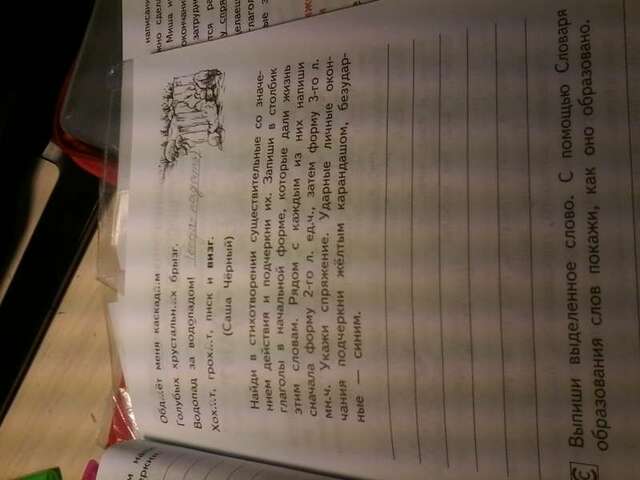 Обд...ёт меня каскад...м
Голубых хрустальн...х брызг.
Водопад за водопадом!
Хох...т, грох...т, писк и визг.
(Саша Чёрный)
Найди в стихотворении существительные со значе-
нием действия и подчеркни их. Запиши в столбик
глаголы в начальной форме, которые дали жизнь
этим словам. Рядом с каждым из них напиши
сначала форму 2-го л. ед.ч., затем форму 3-го л.
мн.ч. Укажи спряжение. Ударные личные окон-
чания подчеркни жёлтым карандашом, безудар-
ные — синим.
С Выпиши выделенное слово. С помощью Словаря
образования слов покажи, как оно образовано.